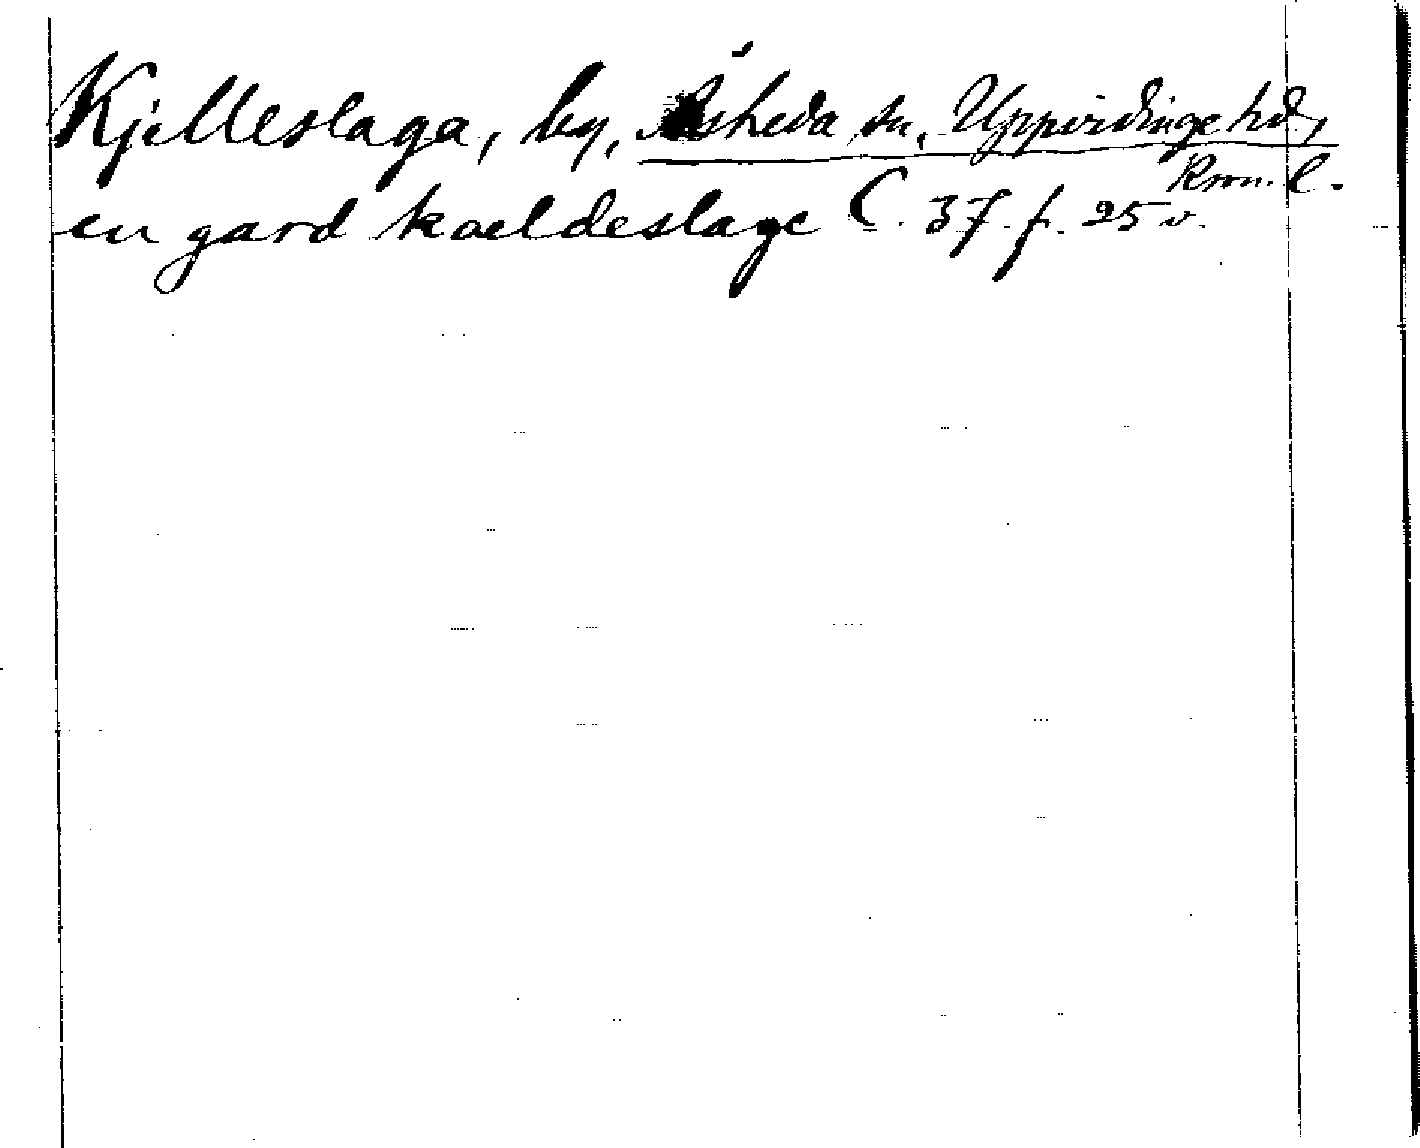 Kjelleslaga, by, Åsheda sn, Uppvidinge hd,
Kron. l.
en gard kaeldeslage C. 37 f. 25 v.